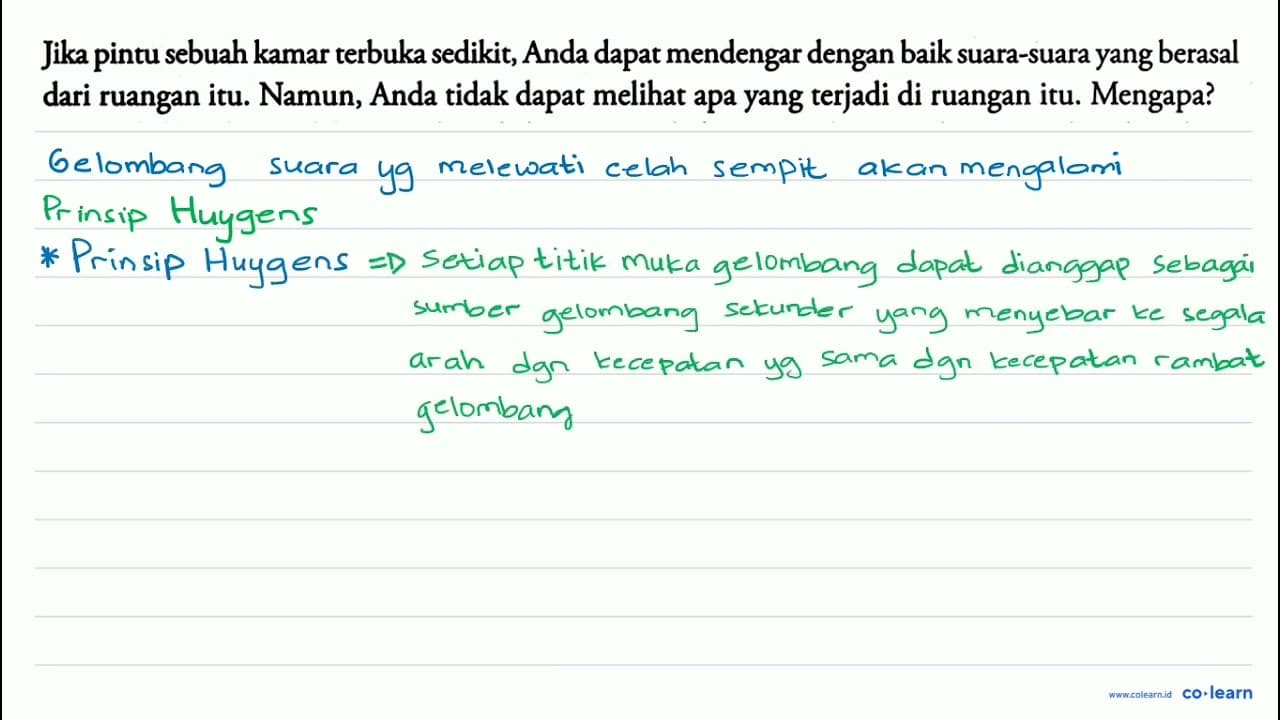 Jika pintu sebuah kamar terbuka sedikit, Anda dapat mendengar dengan baik suara-suara yang berasal
dari ruangan itu. Namun, Anda tidak dapat melihat apa yang terjadi di ruangan itu. Mengapa?
Gelombang suara yg melewati celah sempit akan mengalami
Prinsip Huygens
* Prinsip Huygens => Setiap titik muka gelombang dapat dianggap sebagai
sumber gelombang sekunder yang menyebar ke segala
arah dgn kecepatan yg sama dgn kecepatan rambat
gelombang
www.colearn.id co·learn